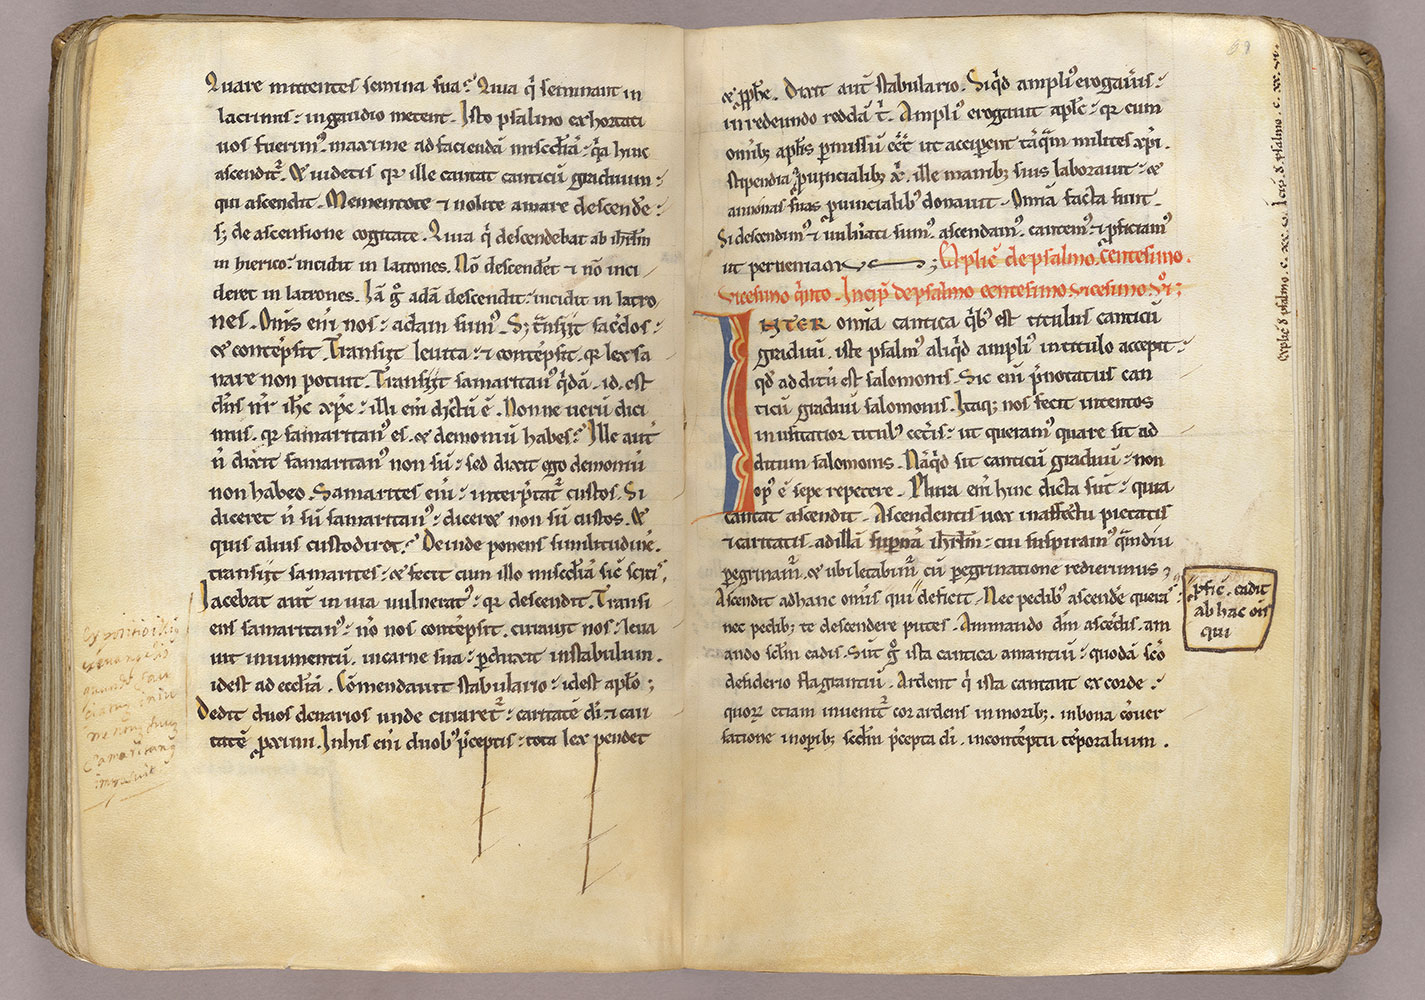 Quare mittentes semina sua؛ Quia q̇ seminant in
lacrimis؛ in gaudio metent. Isto psalmo exhortati
uos fuerim᾽. maxime ad faciendā misc̄diā؛ q̇a hinc
ascendit᾽. & uidetis qr̄ ille cantat canticū graduum؛
qui ascendit. Mementote & nolite amare descende᾽؛
sꝫ de ascensione cogitate. Quia q̇ descendebat ab ihrlm̄
in hierico؛ incidit in latrones. Nō descendet & nō inci
deret in latrones. Iā g̊ adā descendit؛ incidit in latro
nes. Om̄s eni nos؛ adam sum᾽. Sꝫ t̄nsiit sac̄dos؛
& contēpsit. Transiit leuita؛ & contēpsit. qr̄ lex sa
nare non potuit. Transiit samaritan᾽ q̇dā. id est
dn̄s nr̄ ihc̄ xp̄c؛ illi enī dictū ē. Nonne uerū dici
mus. qr̄ samaritan᾽ es. & demoniū habes؛ Ille aut̄
n̄ dixit samaritan᾽ non sū؛ sed dixit ego demoniū
non habeo. Samarites enī؛ interp̄tat᾽ custos. Si
diceret n̄ sū samaritan᾽؛ diceret non sū custos. &
quis alius custodiret؛ Deinde ponens similitudinē.
transiit samarites؛ & fecit cum illo misc̄diā sic̄ scitis.
Iacebat aut̄ in uia uulnerat᾽؛ qr̄ descendit. Transi
ens samaritan᾽؛ nō nos contēpsit. curauit nos؛ leua
uit in iumentū. in carne sua؛ ꝑduxit in stabulum.
id est ad eccl̄iā. Cōmendauit stabulario؛ id est apl̄o;
Dedit duos denarios unde curaret᾽؛ caritatē dī. & cari
tatē ꝓximi. In his enī duob᾽ p̄ceptis؛ tota lex pendet
& ꝓph̄e. Dixit aut̄ stabulario. Siq̇d ampli᾽ erogau̇is؛
in redeundo reddā t̊. Ampli᾽ erogauit apl̄s؛ qr̄ cum
om̄ibꝫ apl̄is ꝑmissū eēt ut acciperent tāq̄m milites xp̄i.
stipendia ꝓuincialibꝫ xp̄i. ille manibꝫ suis laborauit؛ &
annonas suas ꝓuincialib᾽ donauit. Om̄ia facta sunt.
Si descendim᾽ & uuln̄ati sum᾽. ascendam᾽. cantem᾽. & ꝓficiam᾽
ut perueniam᾽; Explic̄ de psalmo. Centesimo.
Vicesimo q̇nto. Incip̄ de psalmo centesimo vicesimo VI;
INTER omia cantica q̇b᾽ est titulus canticū
graduū. iste psalm᾽ aliq̇d ampli᾽ in titulo accepit؛
qd᾽ additū est salomonis. Sic enī p̄notatus can
ticū graduū salomonis. Itaqꝫ nos fecit intentos
inusitatior titul᾽ cet̄is؛ ut queram᾽ quare sit ad
ditum salomonis. Nā q̇d sit canticū graduū؛ non
op᾽ ē sepe repetere. Plura enī hinc dicta sūt؛ quia
cantat ascendit. Ascendentis uox in affectu pietatis
& caritatis. ad illā supnā ihrlm̄؛ cui suspiram᾽ q̄mdiu
ꝑegrinam᾽. & ubi letabim᾽ cū ꝑegrinatione redierimus;
Ascendit ad hanc om̄is qui deficit. Nec pedib᾽ ascende᾽ queras؛
nec pedibꝫ te descendere putes. Amando dm̄ ascēdis. am
ando sclm̄ cadis. Sūt g̊ ista cantica amantiū؛ quodā sc̄o
desiderio flagrantiū. Ardent q̇ ista cantant ex corde؛
quor᾽ etiam inuenit᾽ cor ardens in moribꝫ. in bona cōuer
satione in oꝑibꝫ sc̄dm p̄cepta dī. in contēptu tēporalium.
ꝓfic̄. cadit
ab hac om̄is
qui
Explic̄ d̄ psalmo. c. xx. v. Icip̄ d̄ psalmo. c. xx. vi.